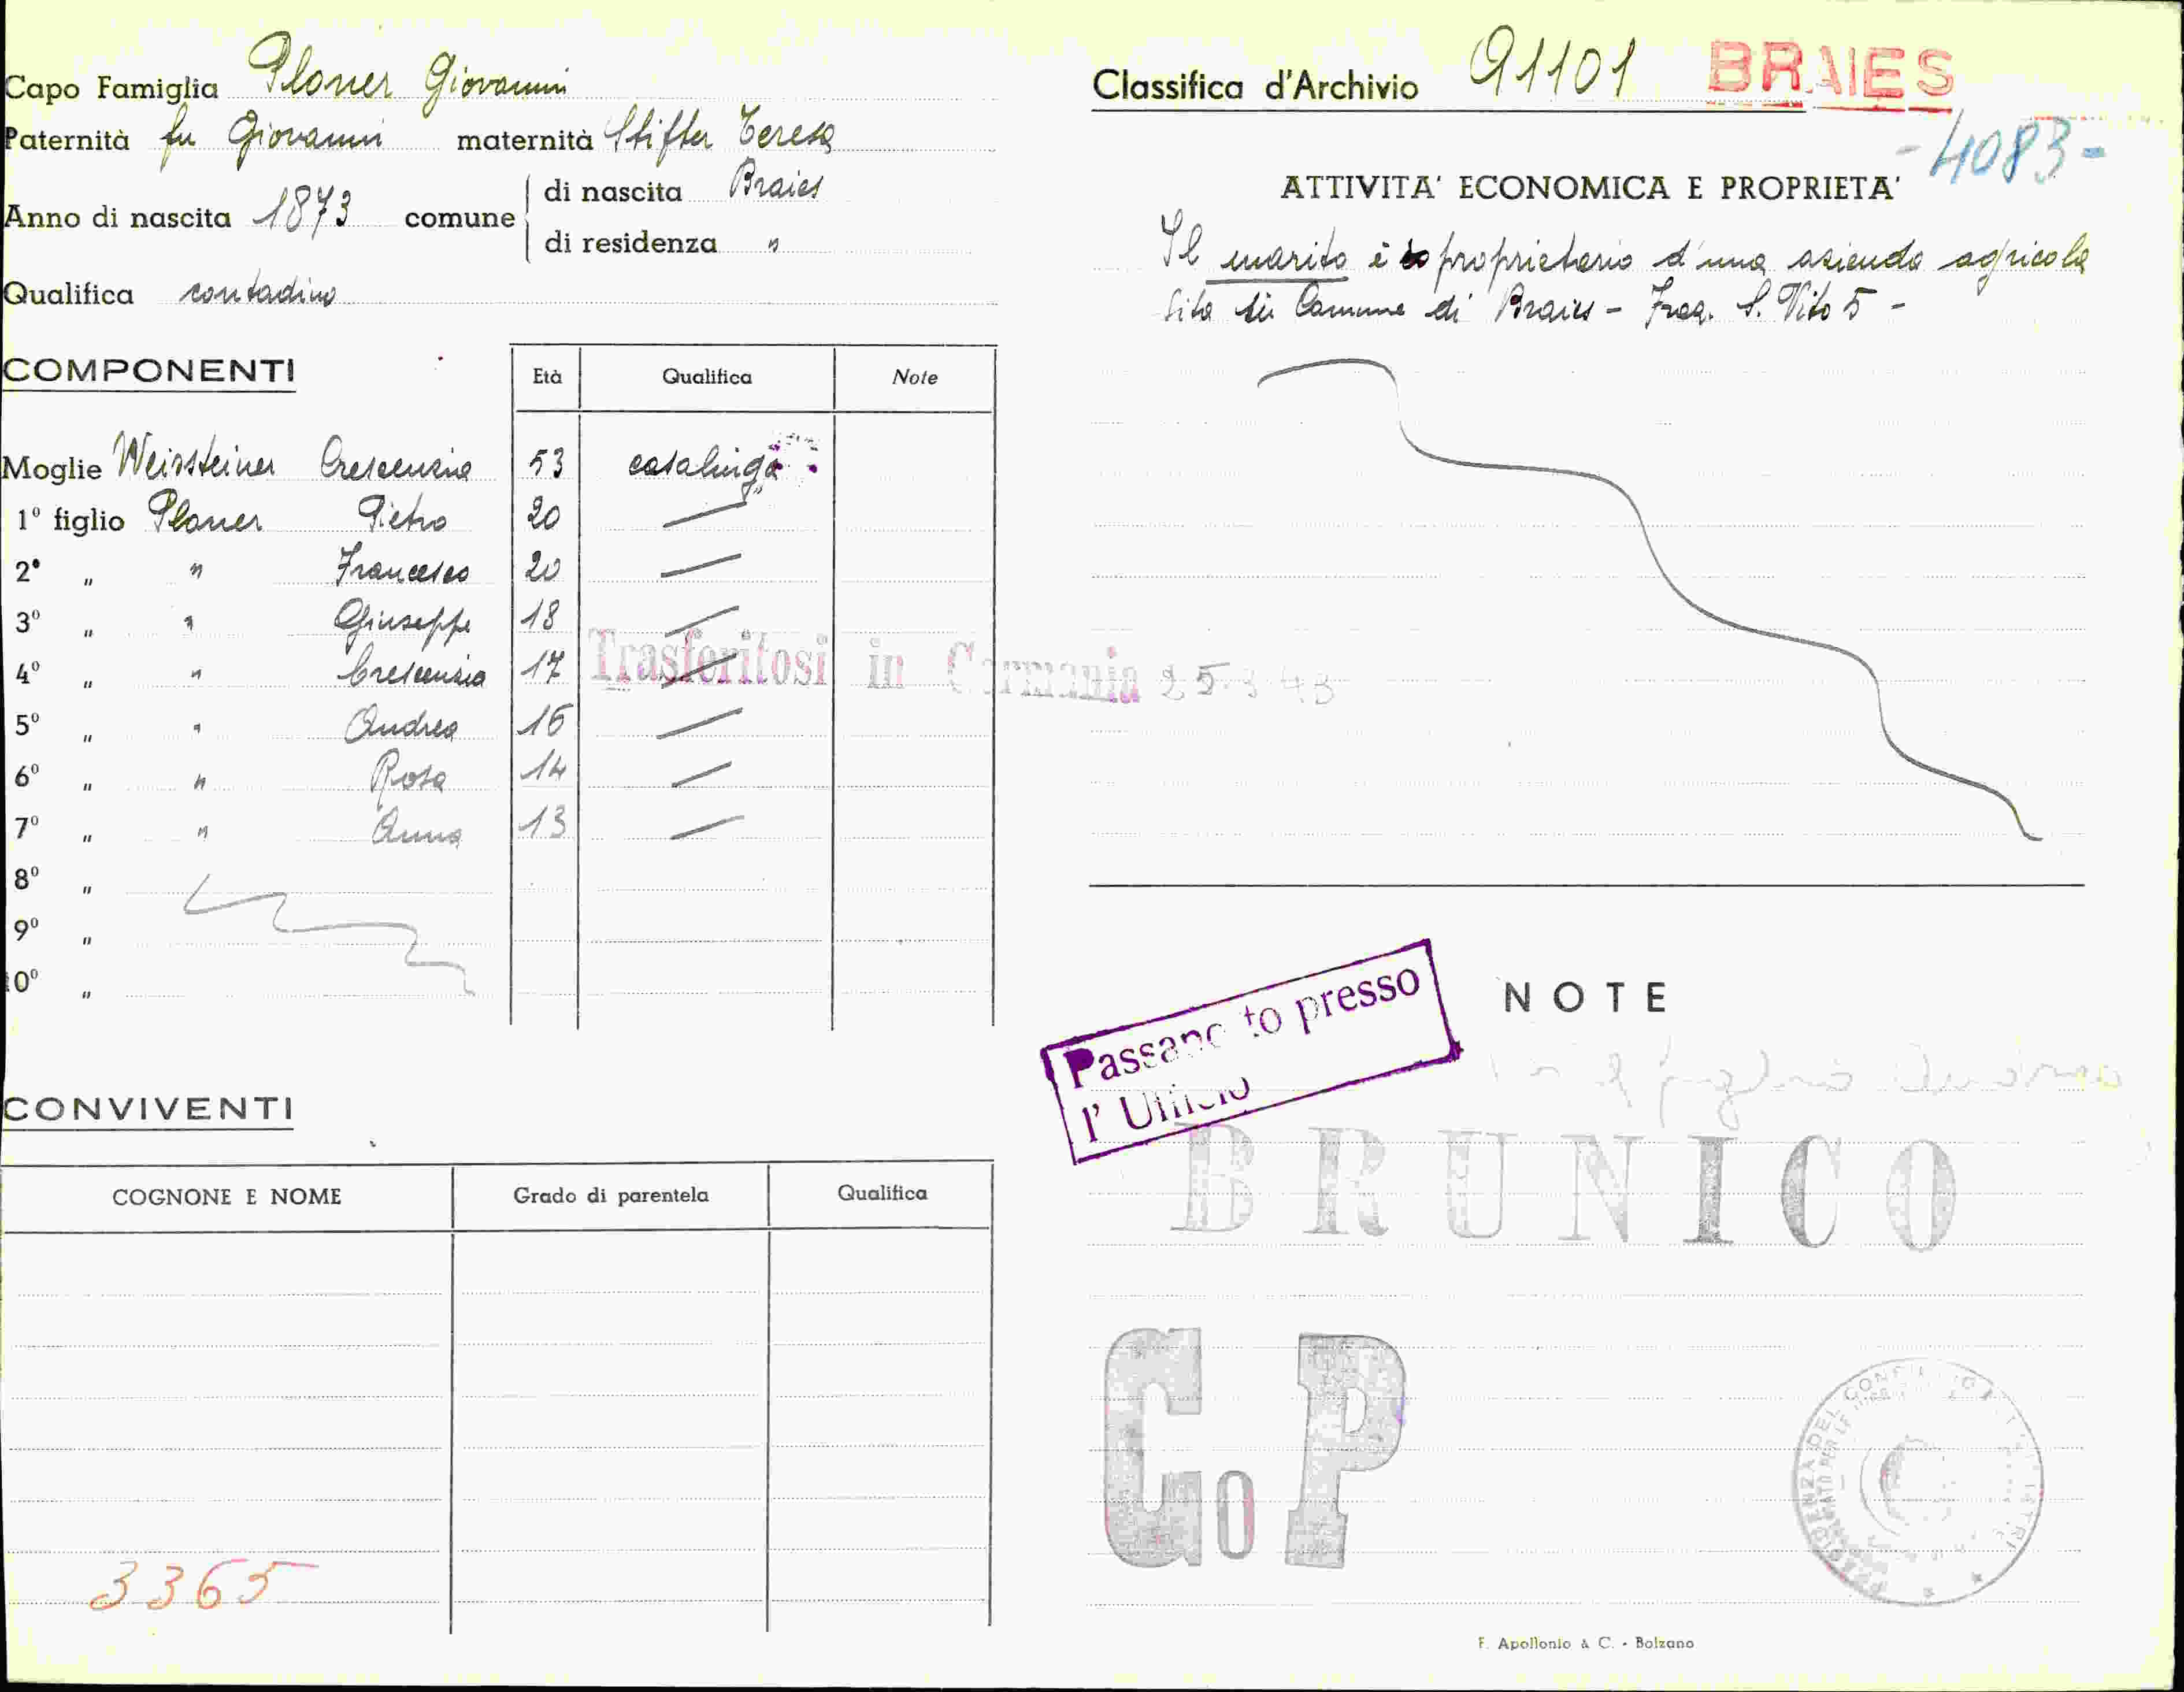 Capo Famiglia Ploner Giovanni
Paternità fu Giovanni maternità Stifter Teresa
Anno di nascita 1873 comune
di nascita Braies
di residenza "
Qualifica contadino
COMPONENTI
Età Qualifica Note
Moglie Weissteiner Crescenzia 53 casalinga
1° figlio Ploner Pietro 20 —
2° " " Francesco 20 —
3° " " Giuseppe 18 —
4° " " Crescenzia 17 —
Trasferitosi in Germania 25.3.43
5° " " Andrea 16 —
6° " " Rosa 14 —
7° " " Anna 13 —
8° "
9° "
10° "
CONVIVENTI
COGNONE E NOME Grado di parentela Qualifica
3365
Classifica d'Archivio 91101 BRAIES
-4083-
ATTIVITA' ECONOMICA E PROPRIETA'
Il marito è proprietario d'una azienda agricola
sita in Comune di Braies - Fraz. S. Vito 5 -
NOTE
Passaporto presso
l' Ufficio
BRUNICO
C.O P
F. Apollonio & C. - Bolzano